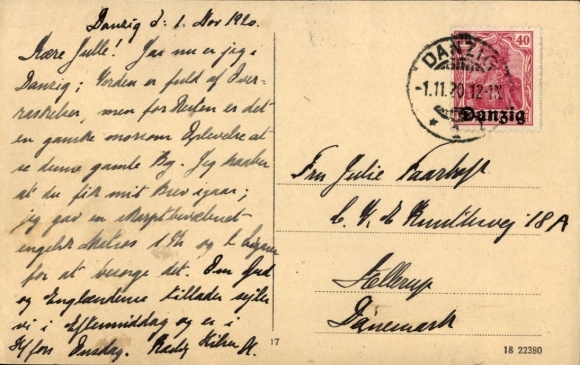 Danzig d: 1. Nov 1920.
Kære Julle! Jaa nu er jeg i
Danzig; Verden er fuld af Over-
raskelser, men for Resten er det
en ganske morsom Oplevelse at
se denne gamle By. Jeg haaber
at du fik mit Brev igaar;
jeg gav en skarptbevæbnet
engelsk Matros 1 Kr og
for at besørge det. Om Gud
og Englænderne tillader sejler
vi i Eftermiddag og er i
Onsdag. Hilsen
DANZIG
-1.11.20.12-1N
40
Danzig
Fru Julie Faarhoft
18A
Hellerup
Dänemark
17
18 22380